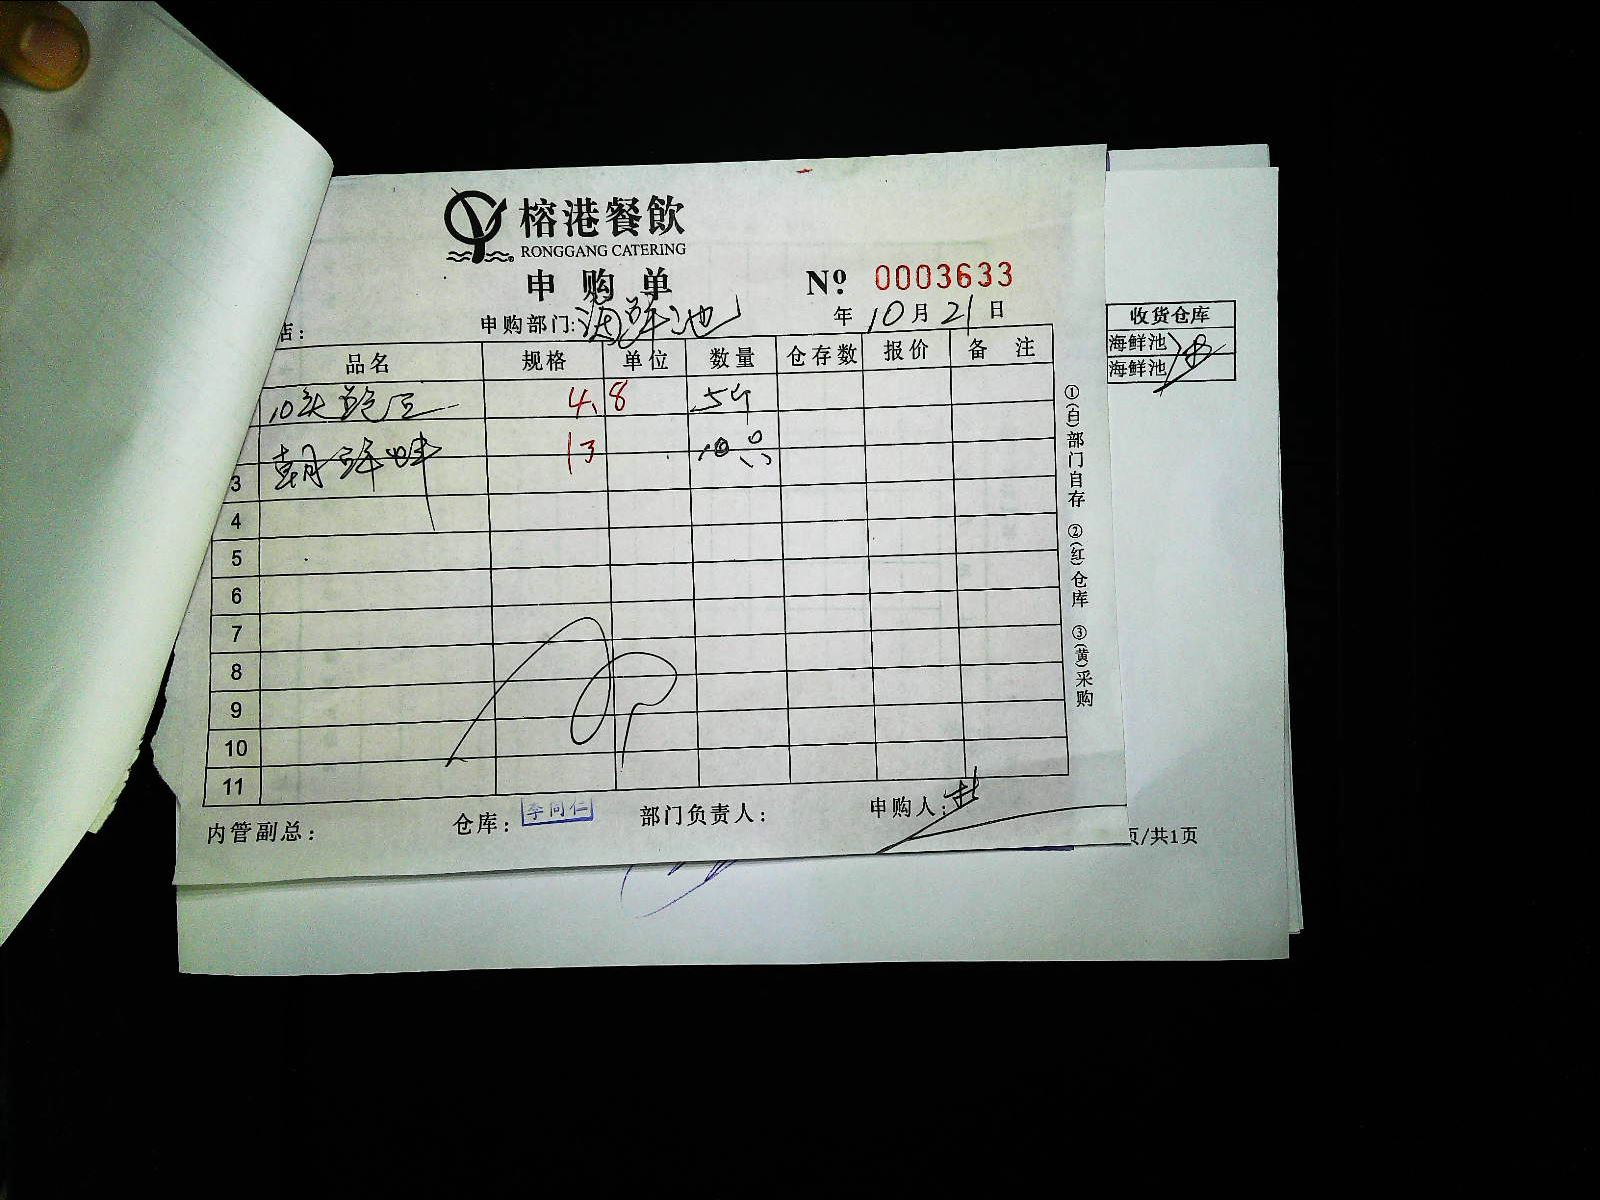 榕港餐飲
RONGGANG CATERING
申购单
№ 0003633
店：
申购部门：海鲜池
年 10 月 21 日
品名 规格 单位 数量 仓存数 报价 备注
10头鲍 4.8 5斤
朝鲜蚌 13 10只
3
4
5
6
7
8
9
10
11
内管副总：
仓库：李同仁
部门负责人：
申购人：
①(白)部门自存 ②(红)仓库 ③(黄)采购
收货仓库
海鲜池
海鲜池
页/共1页